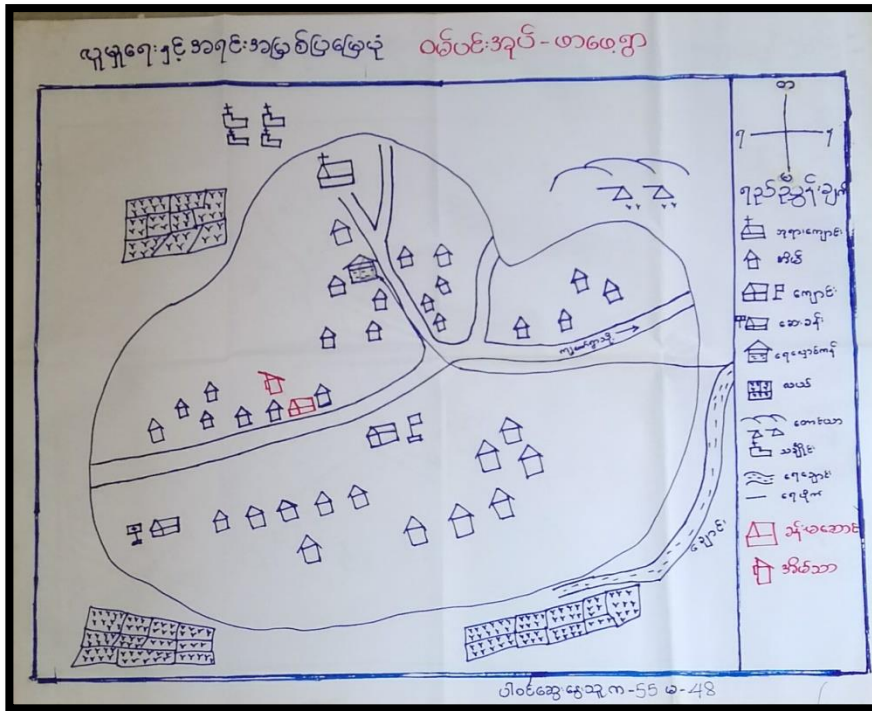 လူမှုရေးနှင့်အရင်းအမြစ်ပြမြေပုံ ဝမ်ပင်းအုပ်-ဖာဖေ့ရွာ
တ
မ
ရည်ညွှန်းချက်
ဘုရားကျောင်း
အိမ်
ကျောင်း
ဆေးခန်း
ရေလှောင်ကန်
လယ်
တောင်ယာ
သင်္ချိုင်း
ရေချောင်း
ရေပိုက်
အိမ်သာ
ချောင်း
ပါဝင်ဆွေးနွေးသူ က-55 မ-48